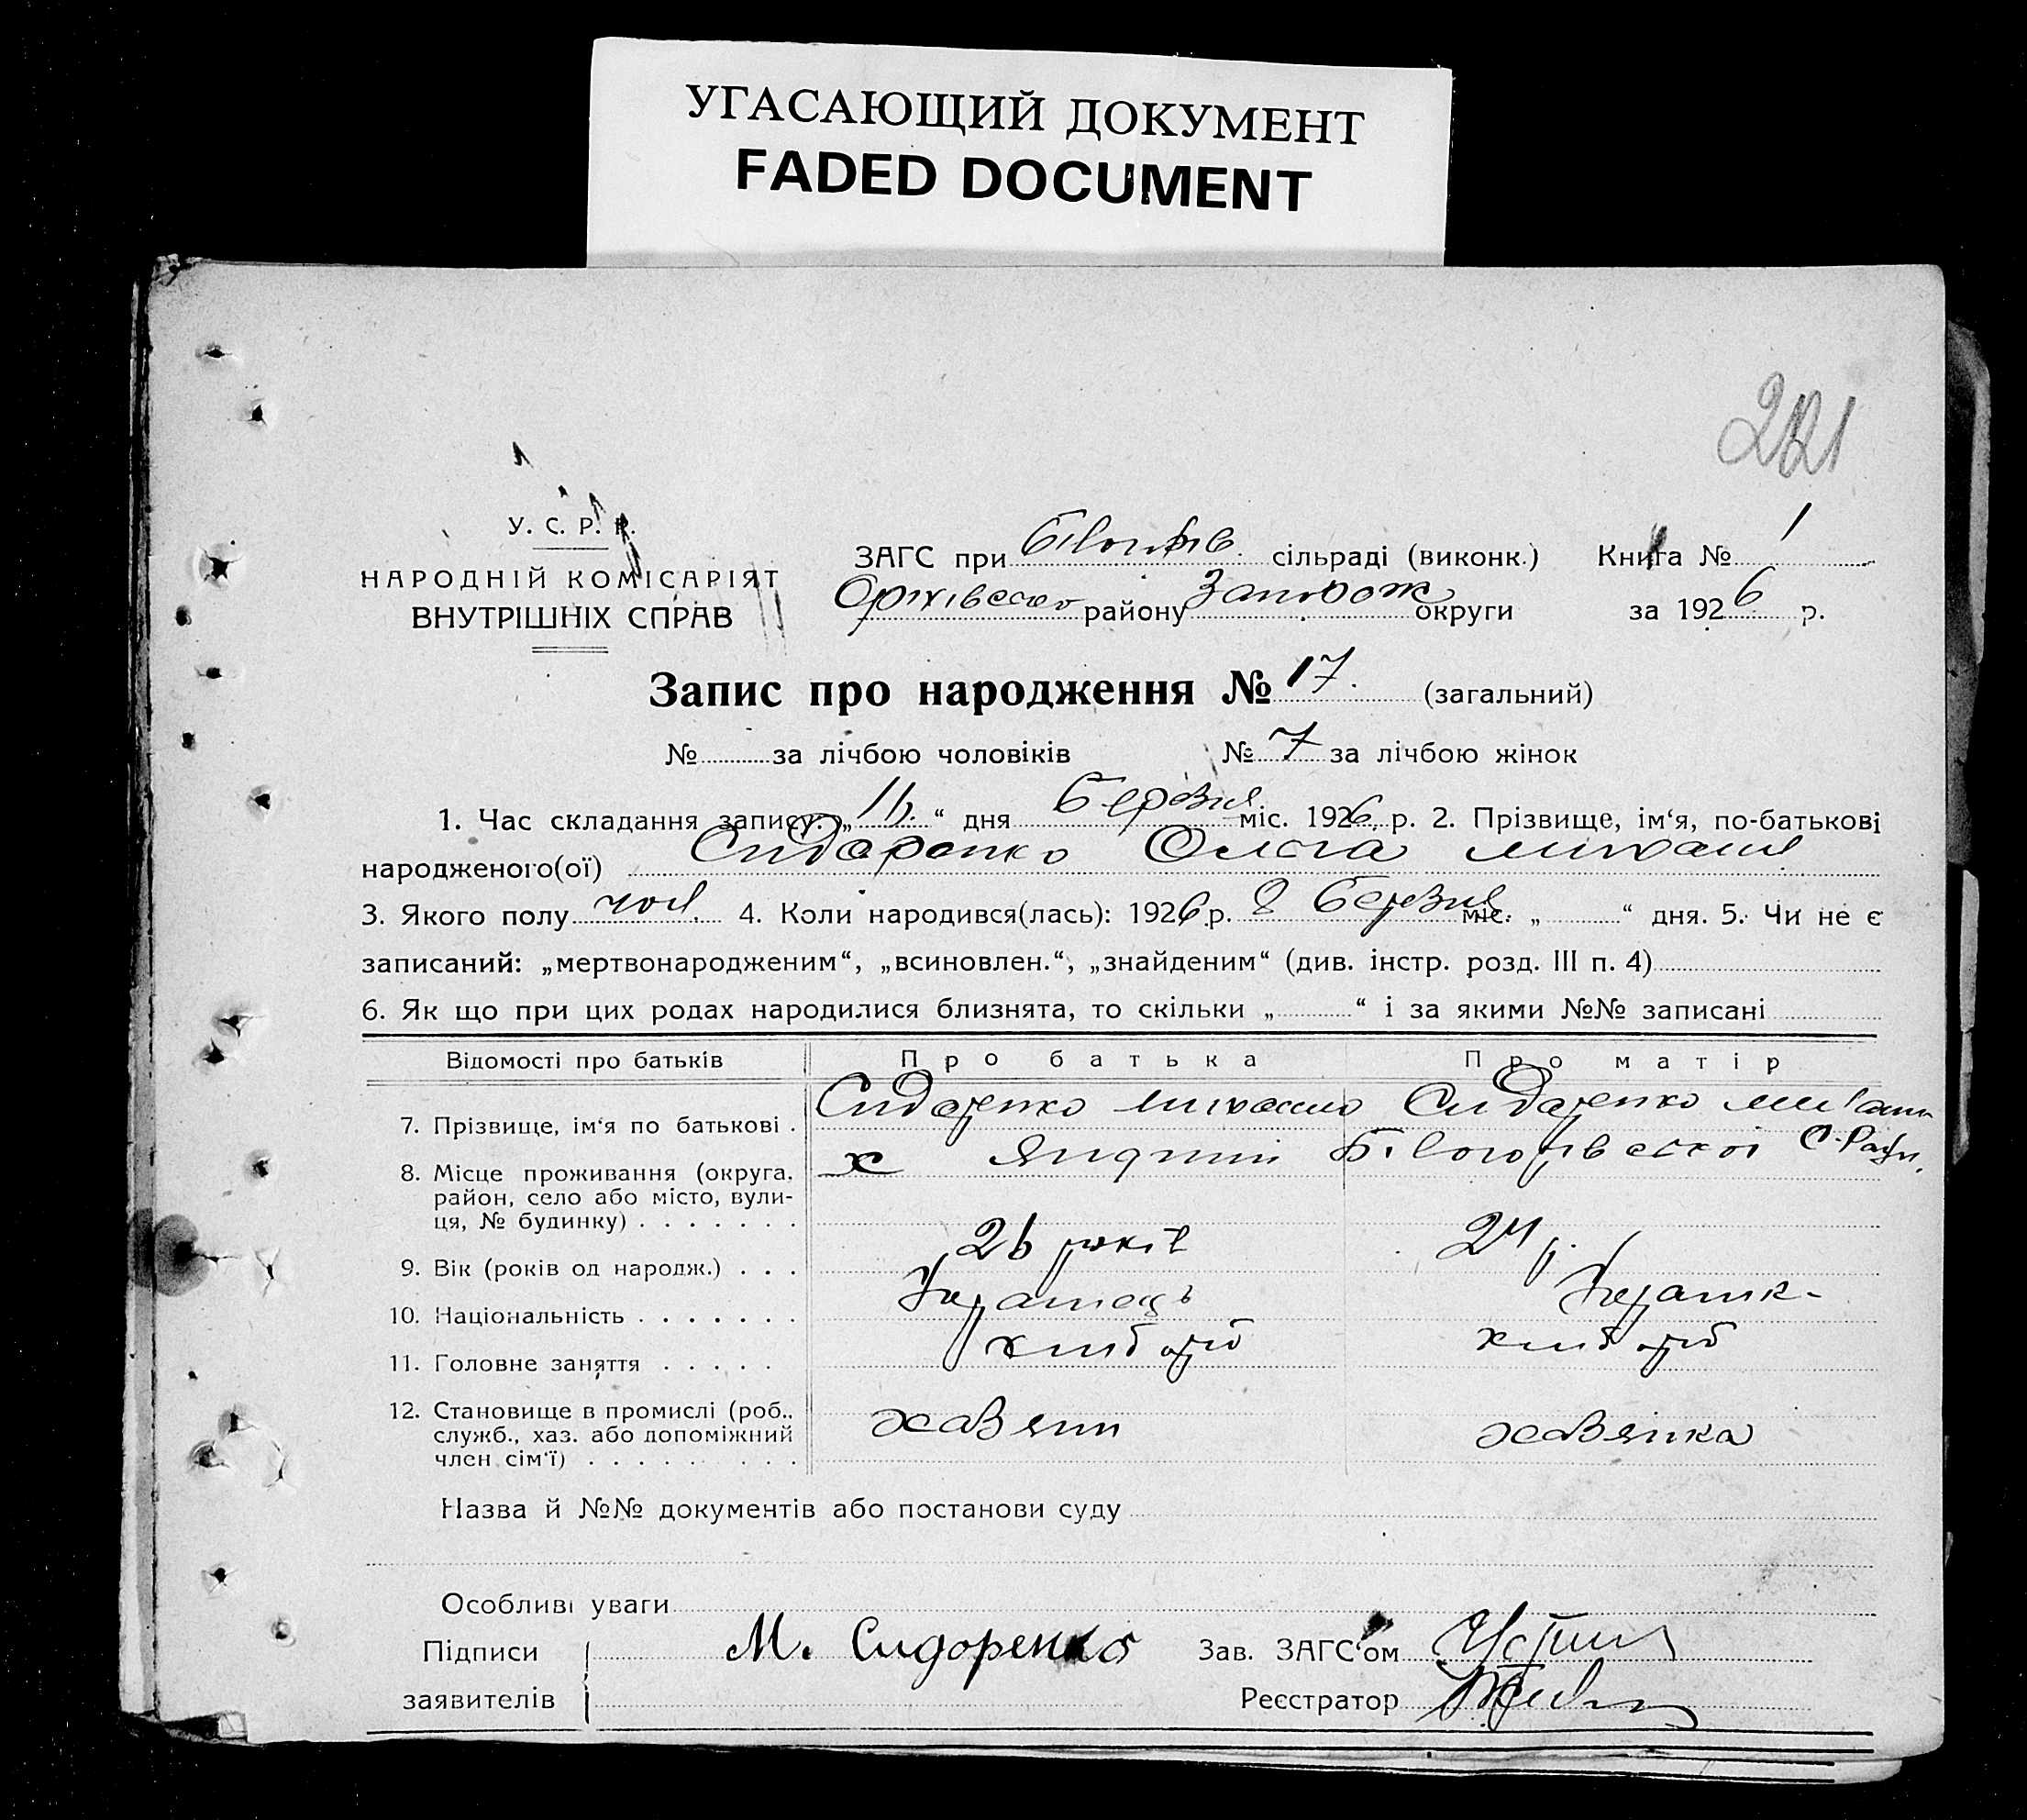 УГАСАЮЩИЙ ДОКУМЕНТ
FADED DOCUMENT
221
У. С. Р. Р.
НАРОДНІЙ КОМІСАРІЯТ
ВНУТРІШНІХ СПРАВ
ЗАГС при сільраді (виконк.) Книга № 1
Оріхівського району Запорож округи за 1926 р.
Запис про народження № 17. (загальний)
№ за лічбою чоловіків № 7 за лічбою жінок
1. Час складання запису: „ “ дня Березня міс. 1926 р. 2. Прізвище, ім‘я, по-батькові
народженого(ої) Сидоренко Ольга Михайл
3. Якого полу 4. Коли народився(лась): 1926 р. 8 Березня міс. „ “ дня. 5. Чи не є
записаний: „мертвонародженим“, „всиновлен.“, „знайденим“ (див. інстр. розд. III п. 4)
6. Як що при цих родах народилися близнята, то скільки „ “ і за якими №№ записані
Відомості про батьків Про батька Про матір
7. Прізвище, ім‘я по батькові . Сидоренко Михайло Сидоренко
8. Місце проживання (округа, х С-Ради.
район, село або місто, вули-
ця, № будинку) . . . . . . .
9. Вік (років од народж.) . . . 26 років 24 р.
10. Національність . . . . . . . Українець Українк-
11. Головне заняття . . . . . хлибороб хлибороб
12. Становище в промислі (роб., хазяин хазяйка
служб., хаз. або допоміжний
член сім‘ї) . . . . . . . . .
Назва й №№ документів або постанови суду
Особливі уваги
Підписи М. Сидоренко Зав. ЗАГС‘ом
заявителів Реєстратор